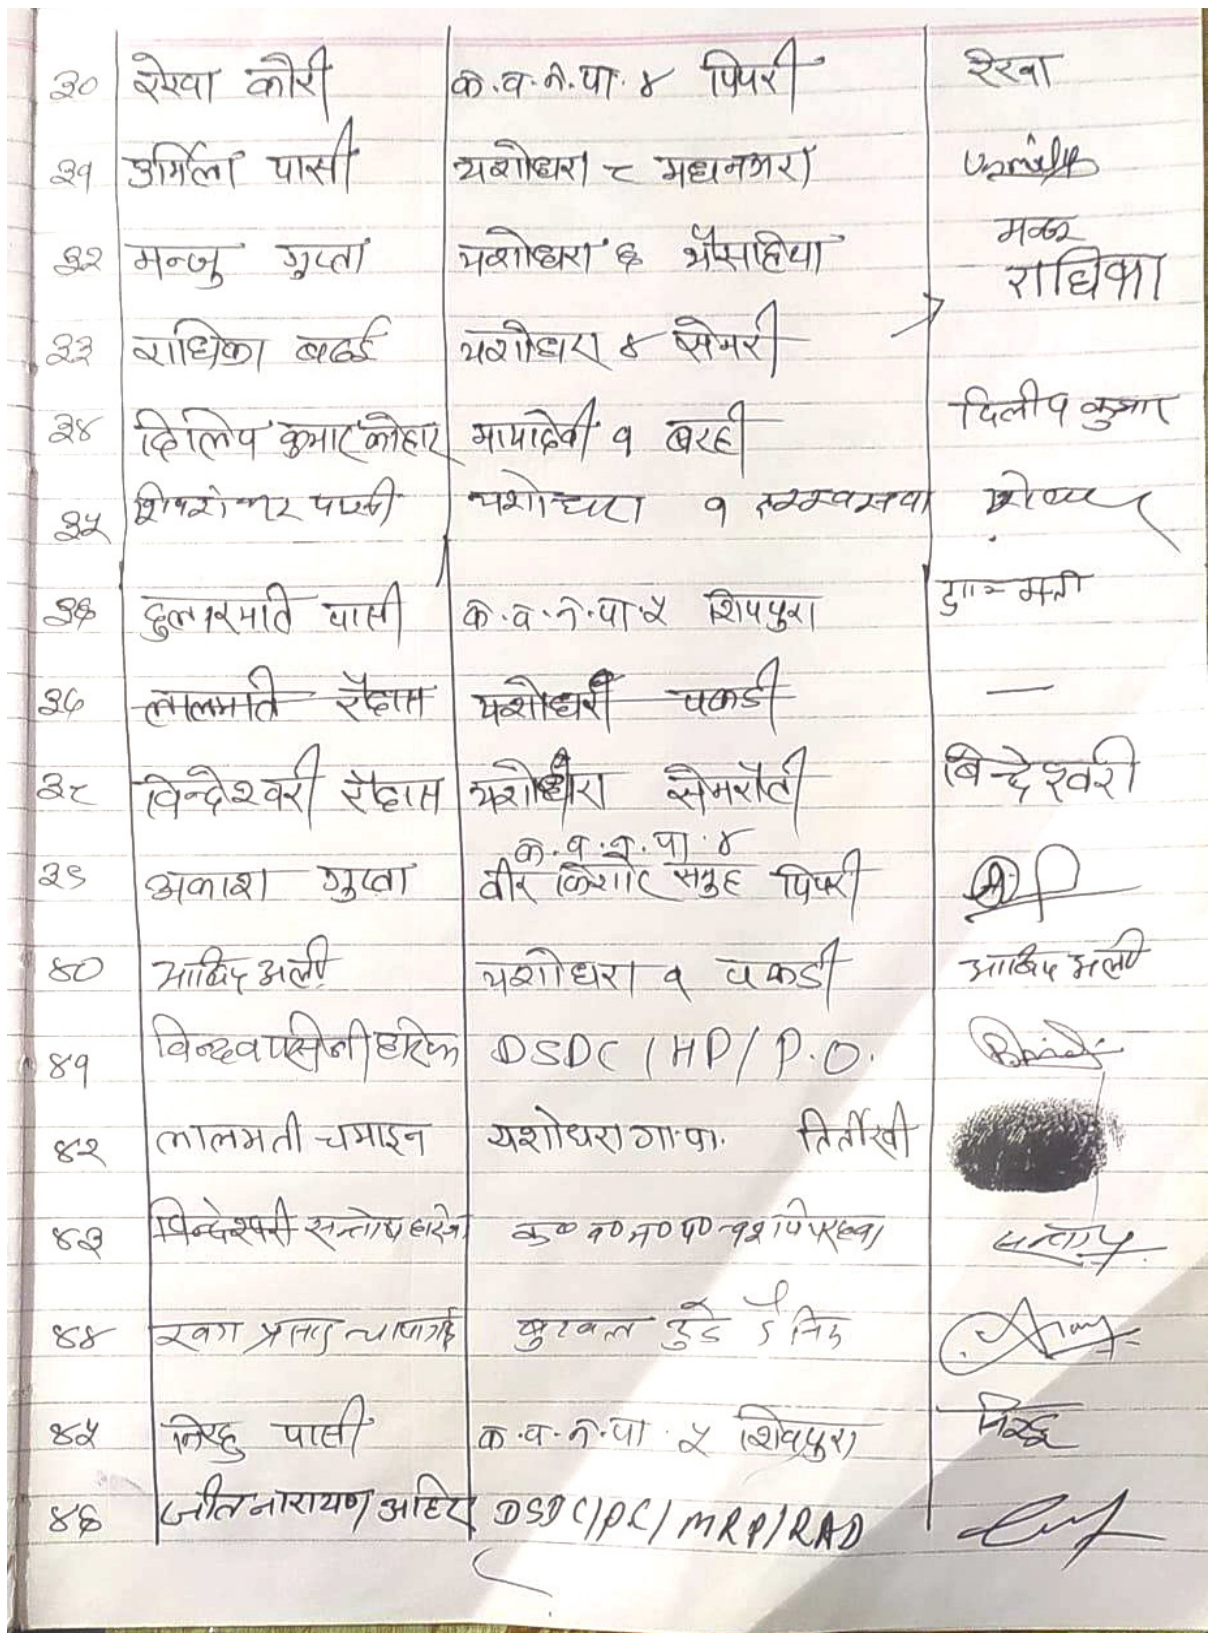 ३० रेखा कोरी क.व.न.पा. ४ पिपरी रेखा
३१ उर्मिला पासी यशोधरा ८ मधनगरा
३२ मन्जु गुप्ता यशोधरा ६ भैसहिया
३३ राधिका बढई यशोधरा ४ सेमरी राधिका
३४ दिलिप कुमार कोहार मायादेवी १ बरही दिलीप कुमार
३५ शिवशंकर पासी यशोधरा १
३६ दुलारमति पासी क.व.न.पा. ५ शिवपुरा
३७ लालमति रैदास यशोधरा पकडी —
३८ विन्देश्वरी रैदास यशोधरा सेमरौती बिन्देश्वरी
क.व.न.पा. ४
३९ अकाश गुप्ता वीर किशोर समुह पिपरी
४० आबिद अली यशोधरा १ पकडी आबिद अली
४१ DSDC / HP / P.O.
४२ लालमती चमाइन यशोधरा गा.पा. तितीरखी
४३ विन्देश्वरी सन्तोष हरिजन क० व० न० पा० पिपरहवा सन्तोष
४४ बुटवल टुडे दैनिक
४५ निरहु पासी क.व.न.पा. ५ शिवपुरा निरहु
४६ जीतनारायण अहिर DSDC/PC/MRP/RAD